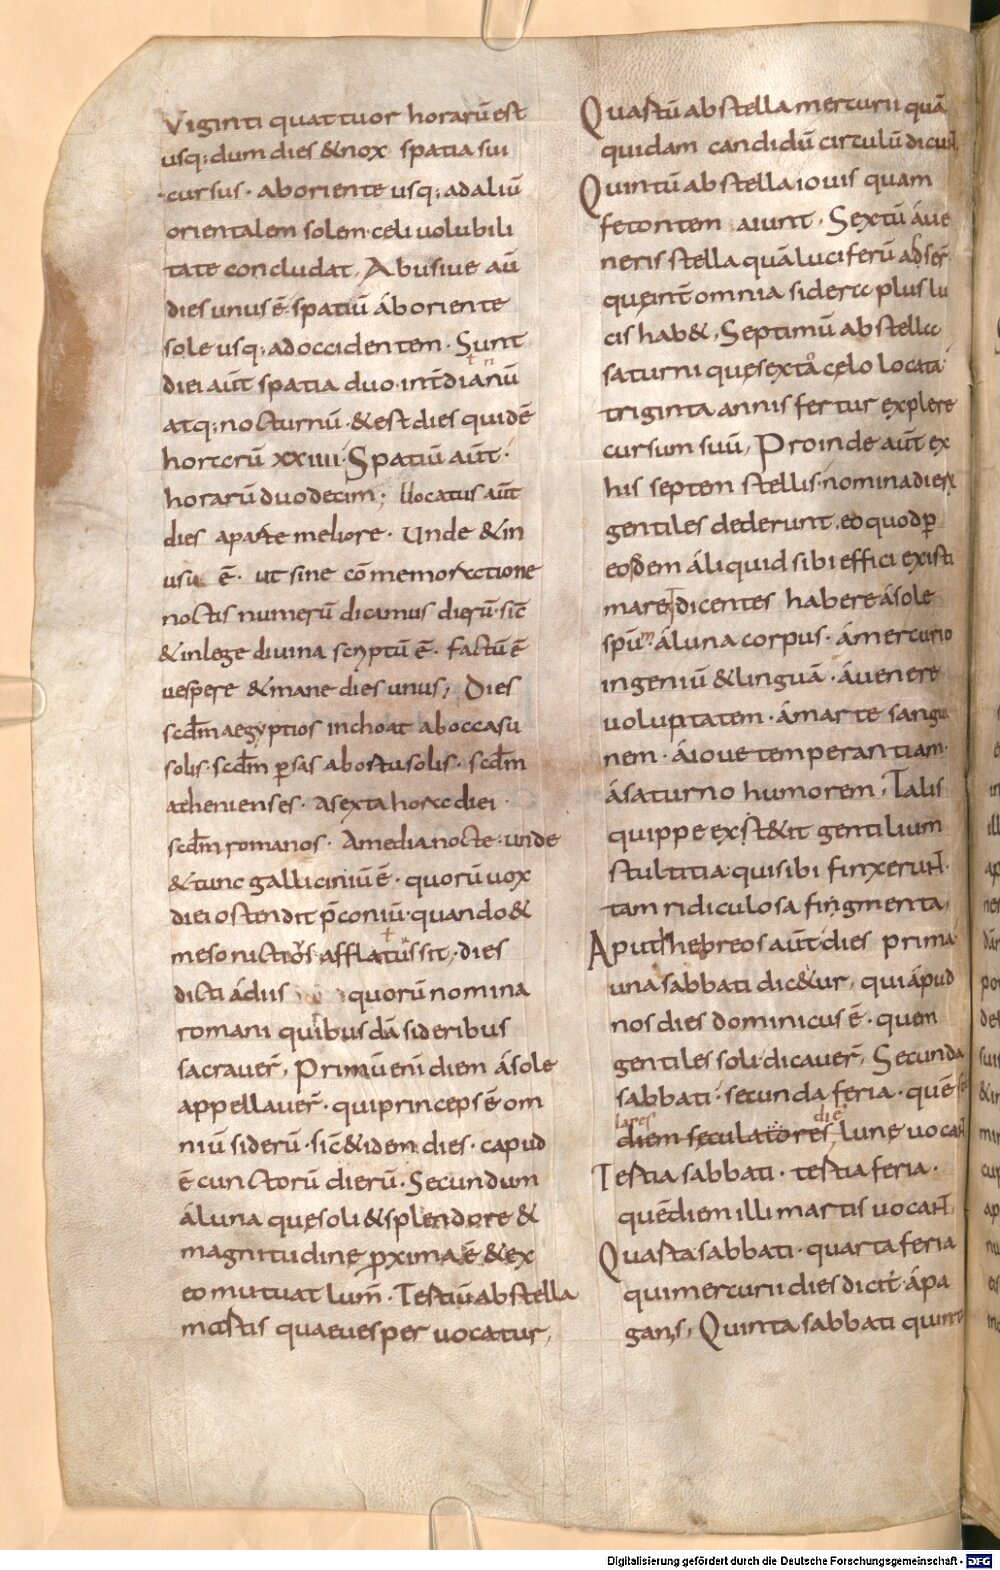 Viginti quattuor horarū est
usq; dum dies & nox spatia sui
cursus · aboriente usq; ad aliū
orientalem solem · celi uolubili
tate concludat, Abusiue aū
dies unus ē · spatiū áboriente
sole usq; adoccidentem · Sunt
diei aūt spatia duo · int̄dianū
atq; nocturnū · & est dies quidē
horarū xxiiii · Spatiū aūt ·
horarū duodecim; locatus aūt
dies aparte meliore · Unde & in
usu ē · ut sine cōmemoratione
noctis numerū dicamus dierū · sic̄
& inlege diuina scriptū ē · factū ē
uespere & mane dies unus, Dies
scd̄m aegyptios inchoat aboccasu
solis · scd̄m ꝑsas abortusolis · scd̄m
athenienses · Asexta hora diei ·
scd̄m romanos · Amedia nocte · unde
& tunc galliciniū ē · quorū uox
diei ostendit p̄coniū · quando &
mesonictiōs afflatus sit, dies
dicti ádiis quorū nomina
romani quibusdā sideribus
sacrauer̄, Primū eni diem ásole
appellauer̄ · qui princeps ē om
niū siderū · sic̄ & idem dies · capud
ē cunctorū dierū · Secundum
áluna quę soli & splendore &
magnitudine ꝓxima ē & ex
eo mutuat lum̄ · Tertiū abstella
martis quae uesper uocatur,
Quartū abstella mercurii quā
quidam candidū circulū dicunt,
Quintū abstella iouis quam
fetontem aiunt · Sextū áue
neris stella quā luciferū adser̄
que int̄ omnia sidera plus lu
cis hab&, Septimū abstella
saturni quę sexto celo locata
triginta annis fertur explere
cursum suū, Proinde aūt ex
his septem stellis · nomina dierꝝ
gentiles dederunt, eo quod ꝑ
eosdem áliquid sibi effici existi
mare, dicentes habere ásole
spūm · áluna corpus · ámercurio
ingeniū & linguā · áuenere
uoluptatem · ámarte sangui
nem · áioue temperantiam ·
ásaturno humorem, Talis
quippe exstitit gentilium
stultitia · qui sibi finxerunt ·
tam ridiculosa fingmenta,
Aput hebreos aūt dies prima
una sabbati dic&ur, qui ápud
nos dies dominicus ē · quem
gentiles soli dicauer̄, Secunda
sabbati · secunda feria · quē
diem seculatores, lune uocant
Tertia sabbati · tertia feria ·
quē diem illi martis uocant,
Quarta sabbati · quarta feria
qui mercurii dies dicit ápa
ganis, Quinta sabbati quint
Digitalisierung gefördert durch die Deutsche Forschungsgemeinschaft - DFG